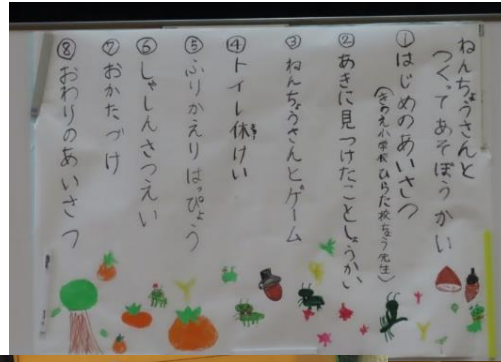 ねんちょうさんと
つくってあそぼうかい
①はじめのあいさつ
(きのえ小学校ひらた校ちょう先生)
②あきに見つけたことしょうかい
③ねんちょうさんとゲーム
④トイレ休けい
⑤ふりかえりはっぴょう
⑥しゃしんさつえい
⑦おかたづけ
⑧おわりのあいさつ